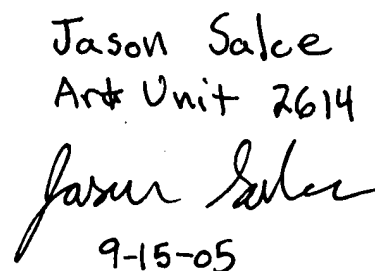 Jason Salce
Art Unit 2614
Jason Salce
9-15-05